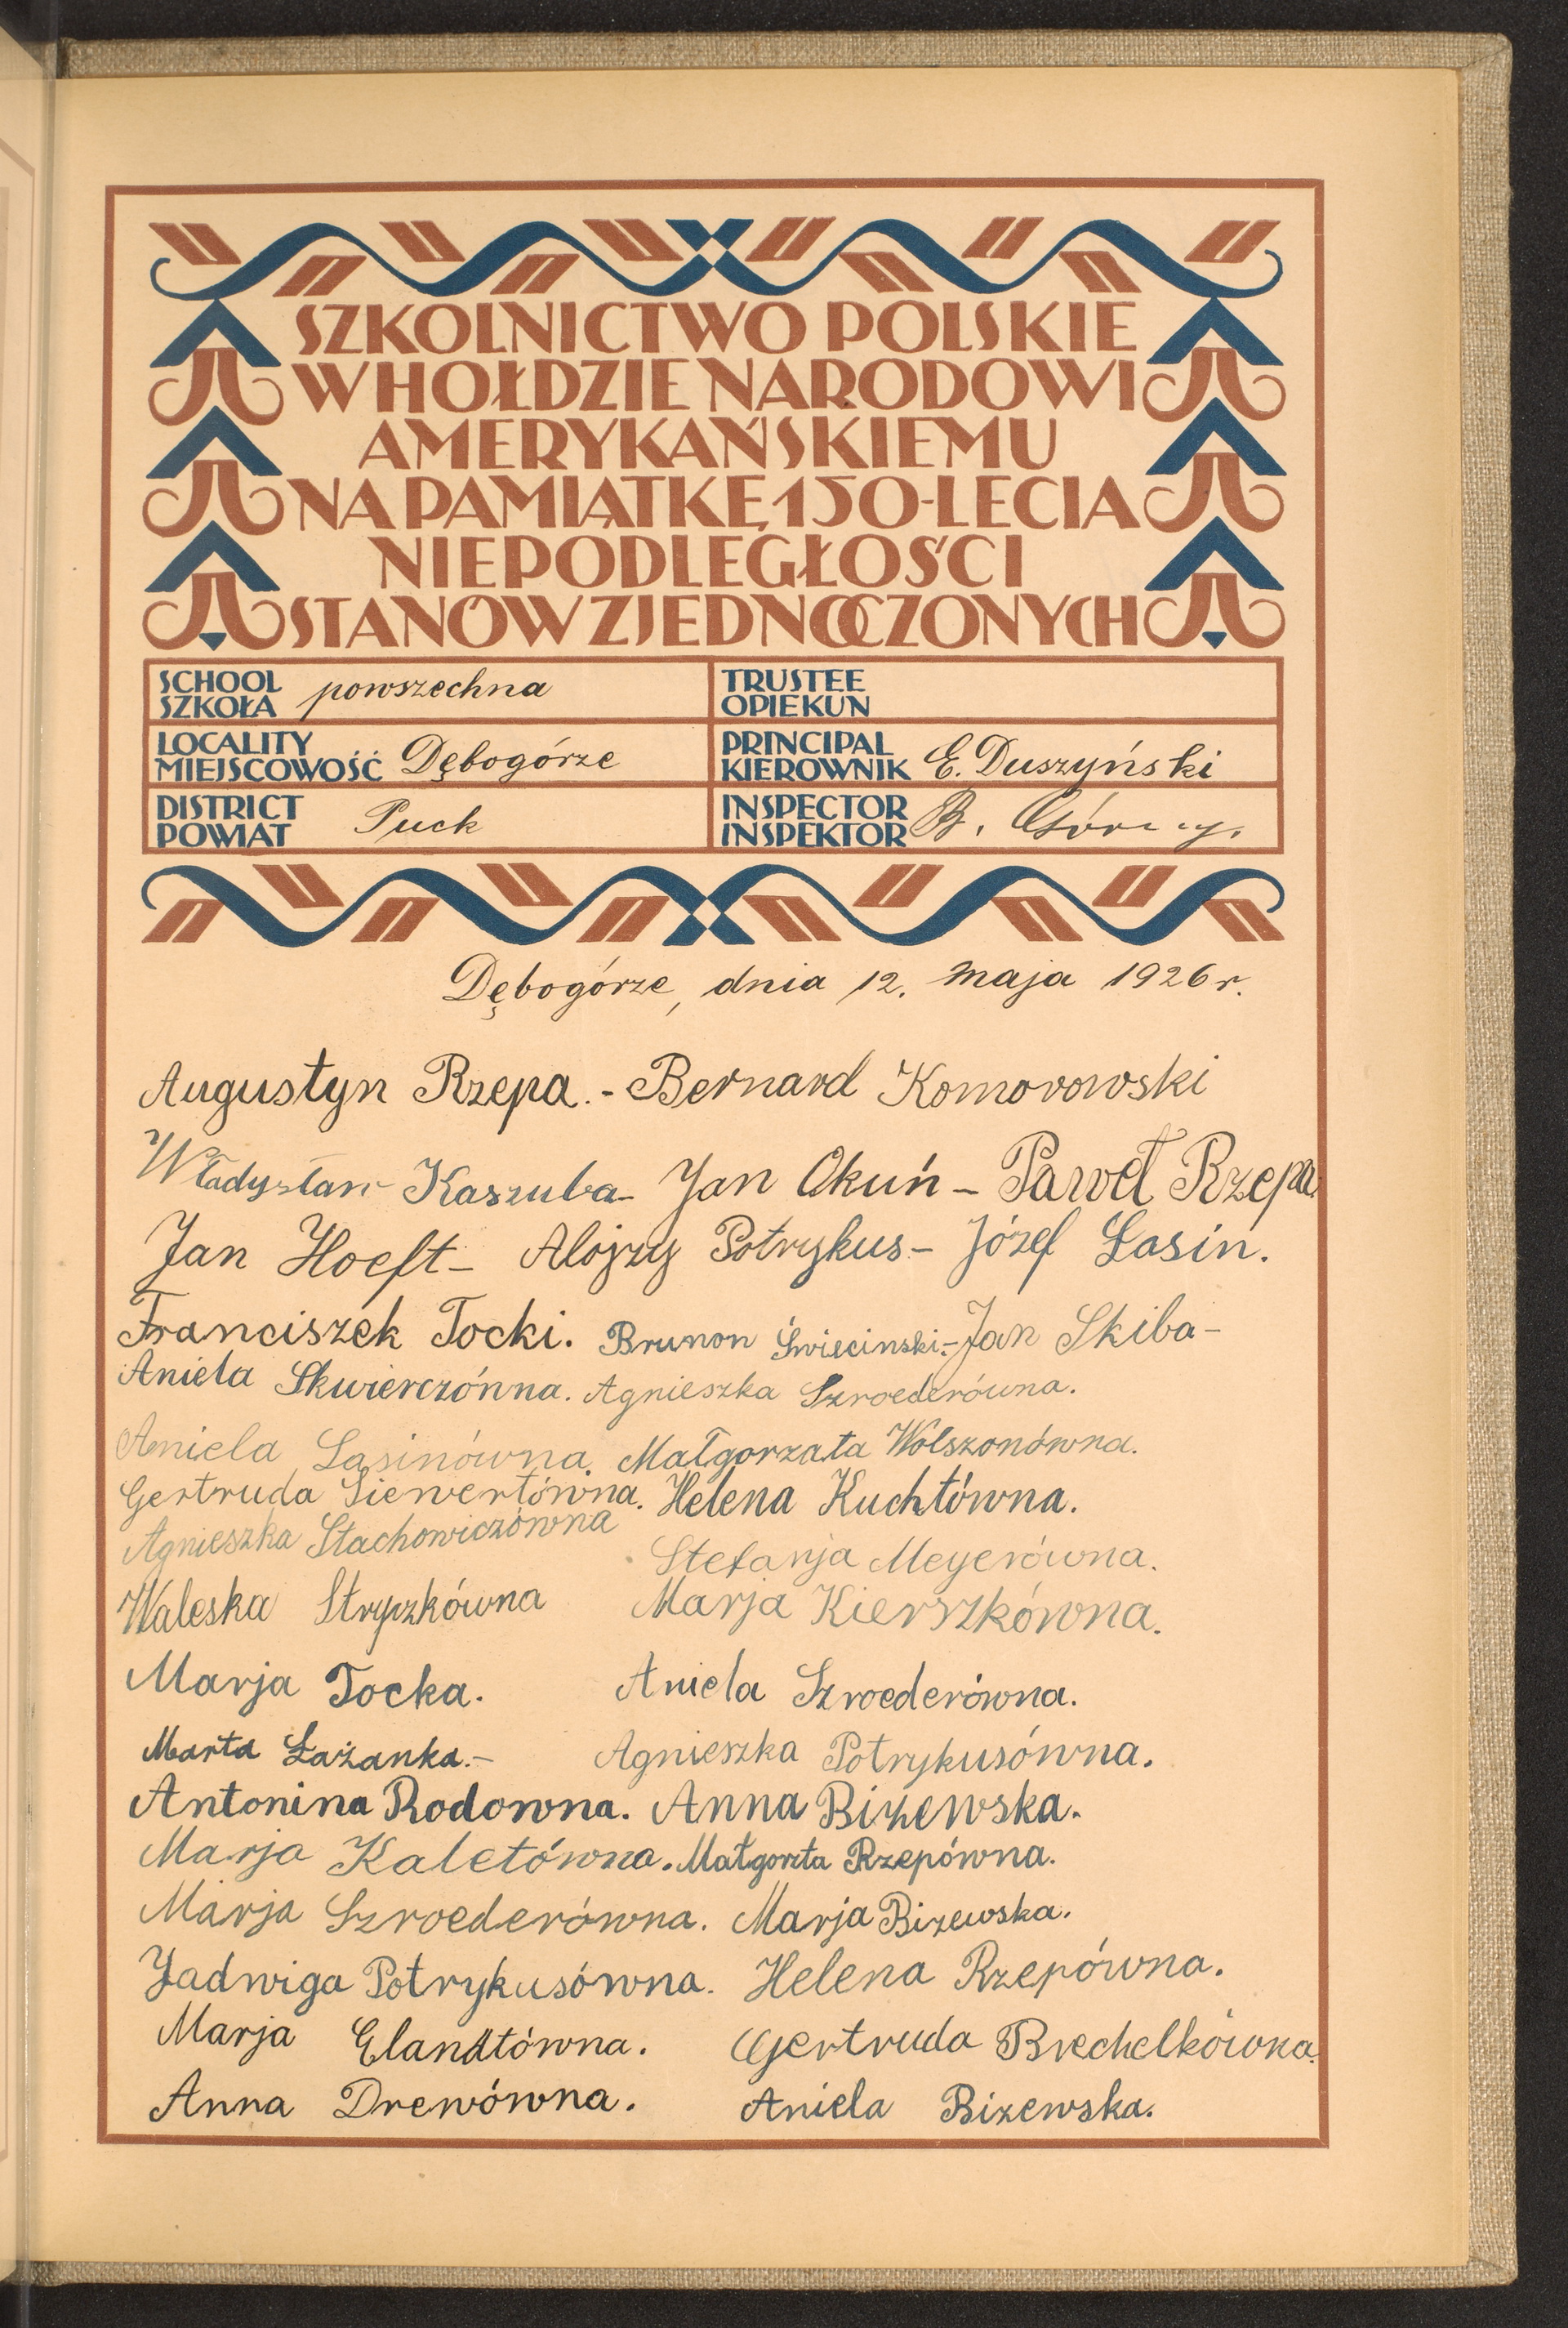 SZKOLNICTWO POLSKIE
W HOŁDZIE NARODOWI
AMERYKAŃSKIEMU
NA PAMIĄTKĘ 150-LECIA
NIEPODLEGŁOŚCI
STANÓW ZJEDNOCZONYCH
SCHOOL
SZKOŁA powszechna
TRUSTEE
OPIEKUN
LOCALITY
MIEJSCOWOŚĆ Dębogórze
PRINCIPAL
KIEROWNIK E. Duszyński
DISTRICT
POWIAT Puck
INSPECTOR
INSPEKTOR B.
Dębogórze, dnia 12. maja 1926 r.
Augustyn Rzepa. - Bernard Komorowski
Władysław Kaszuba - Jan Okuń - Paweł Rzepa.
Jan Hoeft - Alojzy Potrykus - Józef Łasin.
Franciszek Tocki. Brunon Świecinski. - Jan Skiba -
Aniela Skwierczówna. Agnieszka Szroederówna.
Aniela Łasinówna. Małgorzata Wolszonówna.
Gertruda Siewertówna. Helena Kuchtówna.
Agnieszka Stachowiczówna
Stefanja Meyerówna.
Waleska Stryszkówna
Marja Kierszkówna.
Marja Tocka. Aniela Szroederówna.
Marta Łażanka. - Agnieszka Potrykusówna.
Antonina Rodowna. Anna Biżewska.
Marja Kaletówna. Małgorzta Rzepówna.
Marja Szroederówna. Marja Biżewska.
Jadwiga Potrykusówna. Helena Rzepówna.
Marja Elandtówna. Gertruda Brechelkówna.
Anna Drewówna. Aniela Biżewska.